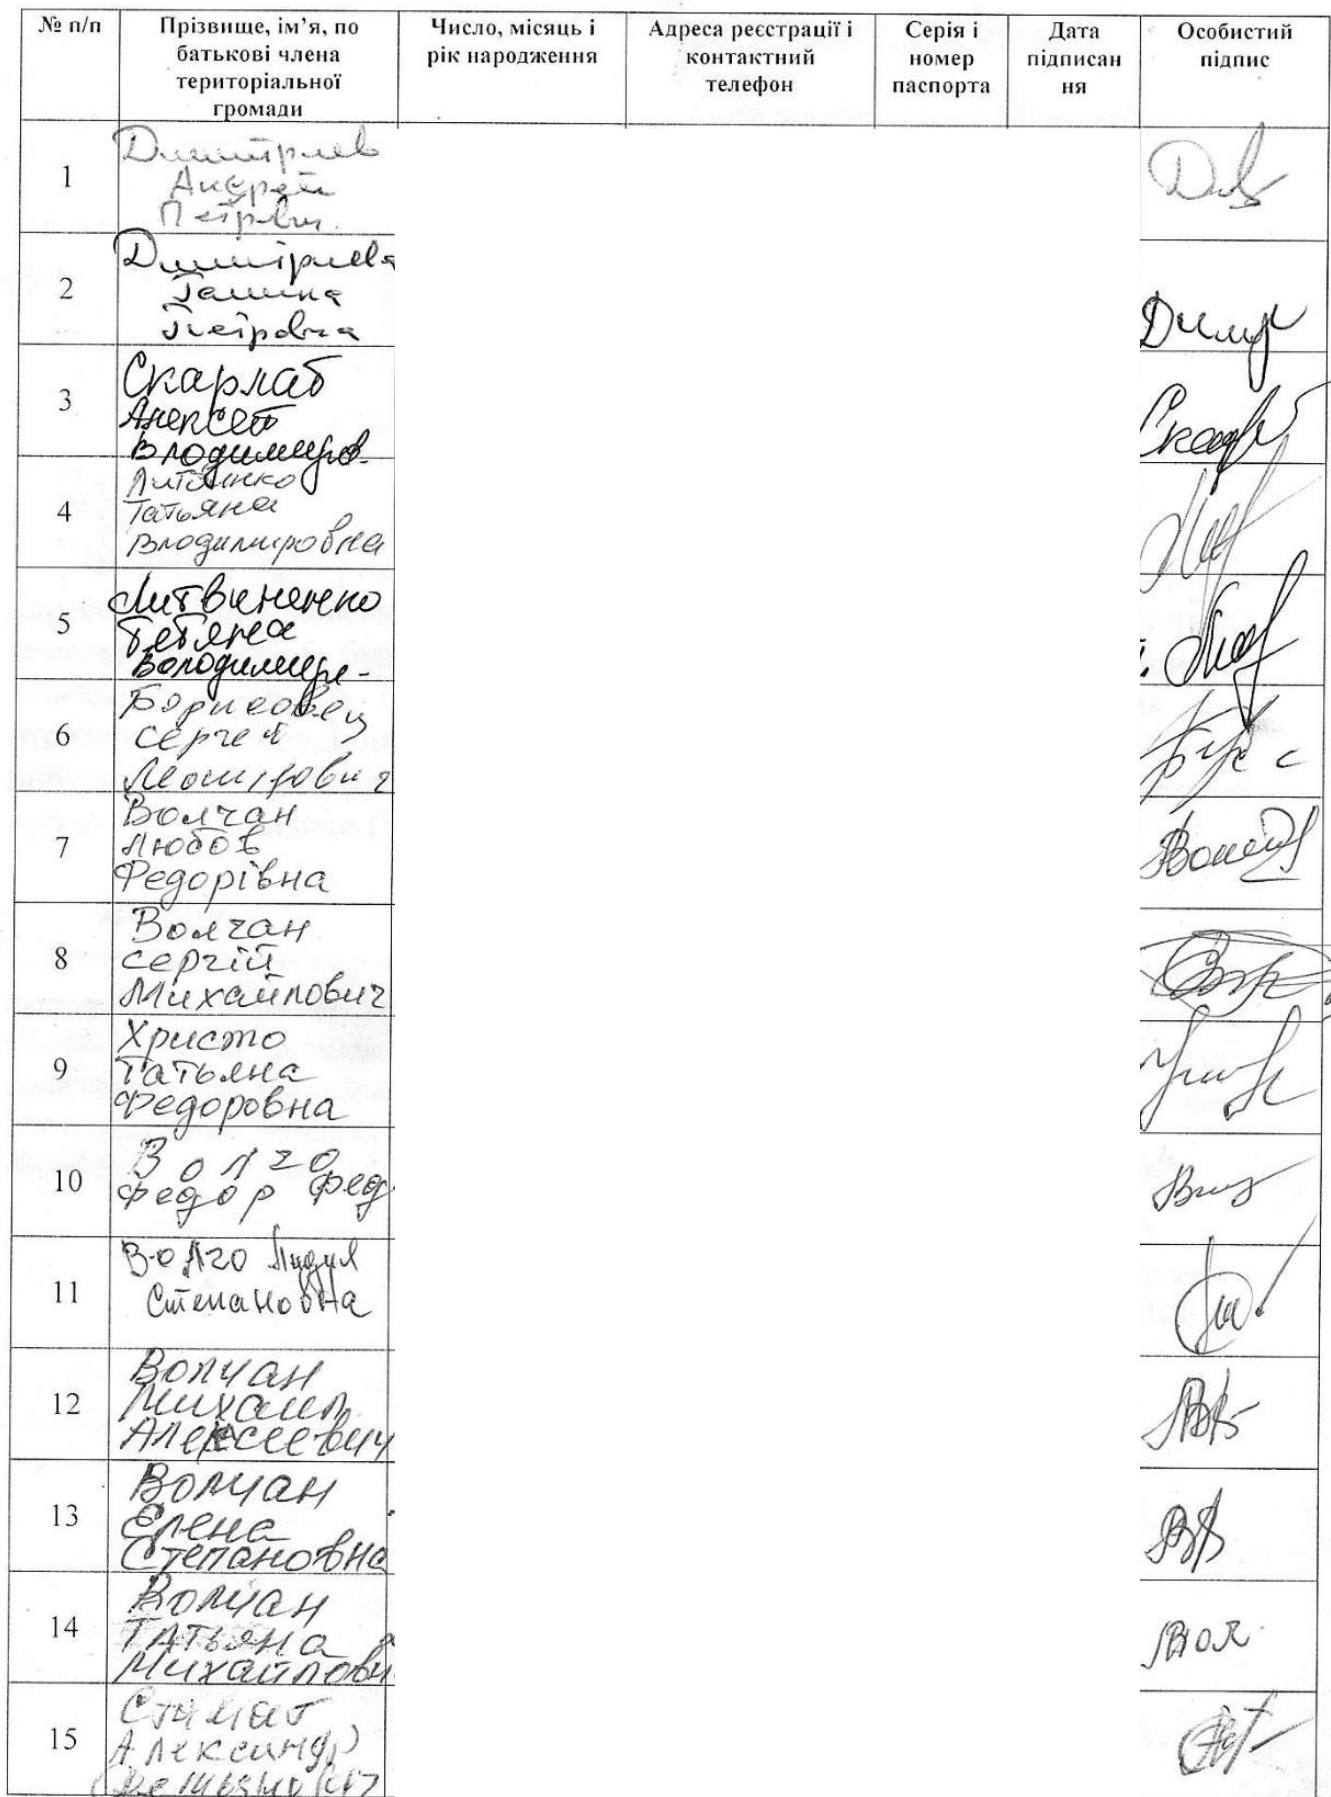 № п/п
Прізвище, ім’я, по
батькові члена
територіальної
громади
Число, місяць і
рік народження
Адреса реєстрації і
контактний
телефон
Серія і
номер
паспорта
Дата
підписан
ня
Особистий
підпис
1
Димитриев
Андрей
Петрович
2
Димитриева
Галина
Петровна
3
Скарлат
Алексей
Владимиров.
4
Татьяна
Владимировна
5
Литвиненко
Тетяна
Володимирі-
6
Борисовец
Сергей
7
Волчан
Любов
Федорівна
8
Волчан
Сергій
Михайлович
9
Христо
Татьяна
Федоровна
10
Волго
Федор Фед
11
Волго Лидия
Степановна
12
Волчан
Михаил
Алексеевич
13
Волчан
Елена
Степановна
14
Волчан
Татьяна
Михайлови
15
Стамат
Александр